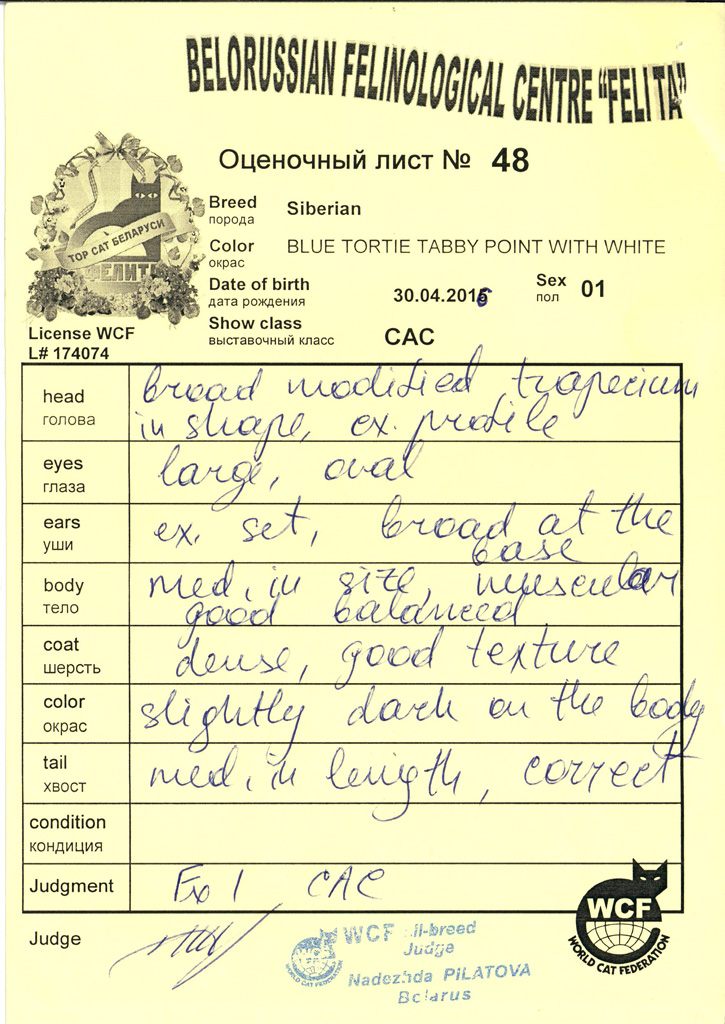 BELORUSSIAN FELINOLOGICAL CENTRE "FELITA"
Оценочный лист № 48
TOP CAT БЕЛАРУСИ
ФЕЛИТА
Breed Siberian
порода
Color BLUE TORTIE TABBY POINT WITH WHITE
окрас
Date of birth 30.04.2016 Sex 01
дата рождения пол
Show class CAC
выставочный класс
License WCF
L# 174074
head broad modified trapecium
голова in shape, ex. profile
eyes large, oval
глаза
ears ex. set, broad at the
уши base
body med. in size, muscular
тело good balanced
coat dense, good texture
шерсть
color slightly dark on the body
окрас
tail med. in length, correct
хвост
condition
кондиция
Judgment Ex 1 CAC
Judge
WCF all-breed
Judge
Nadezhda PILATOVA
Belarus
WORLD CAT FEDERATION
WCF
WORLD CAT FEDERATION